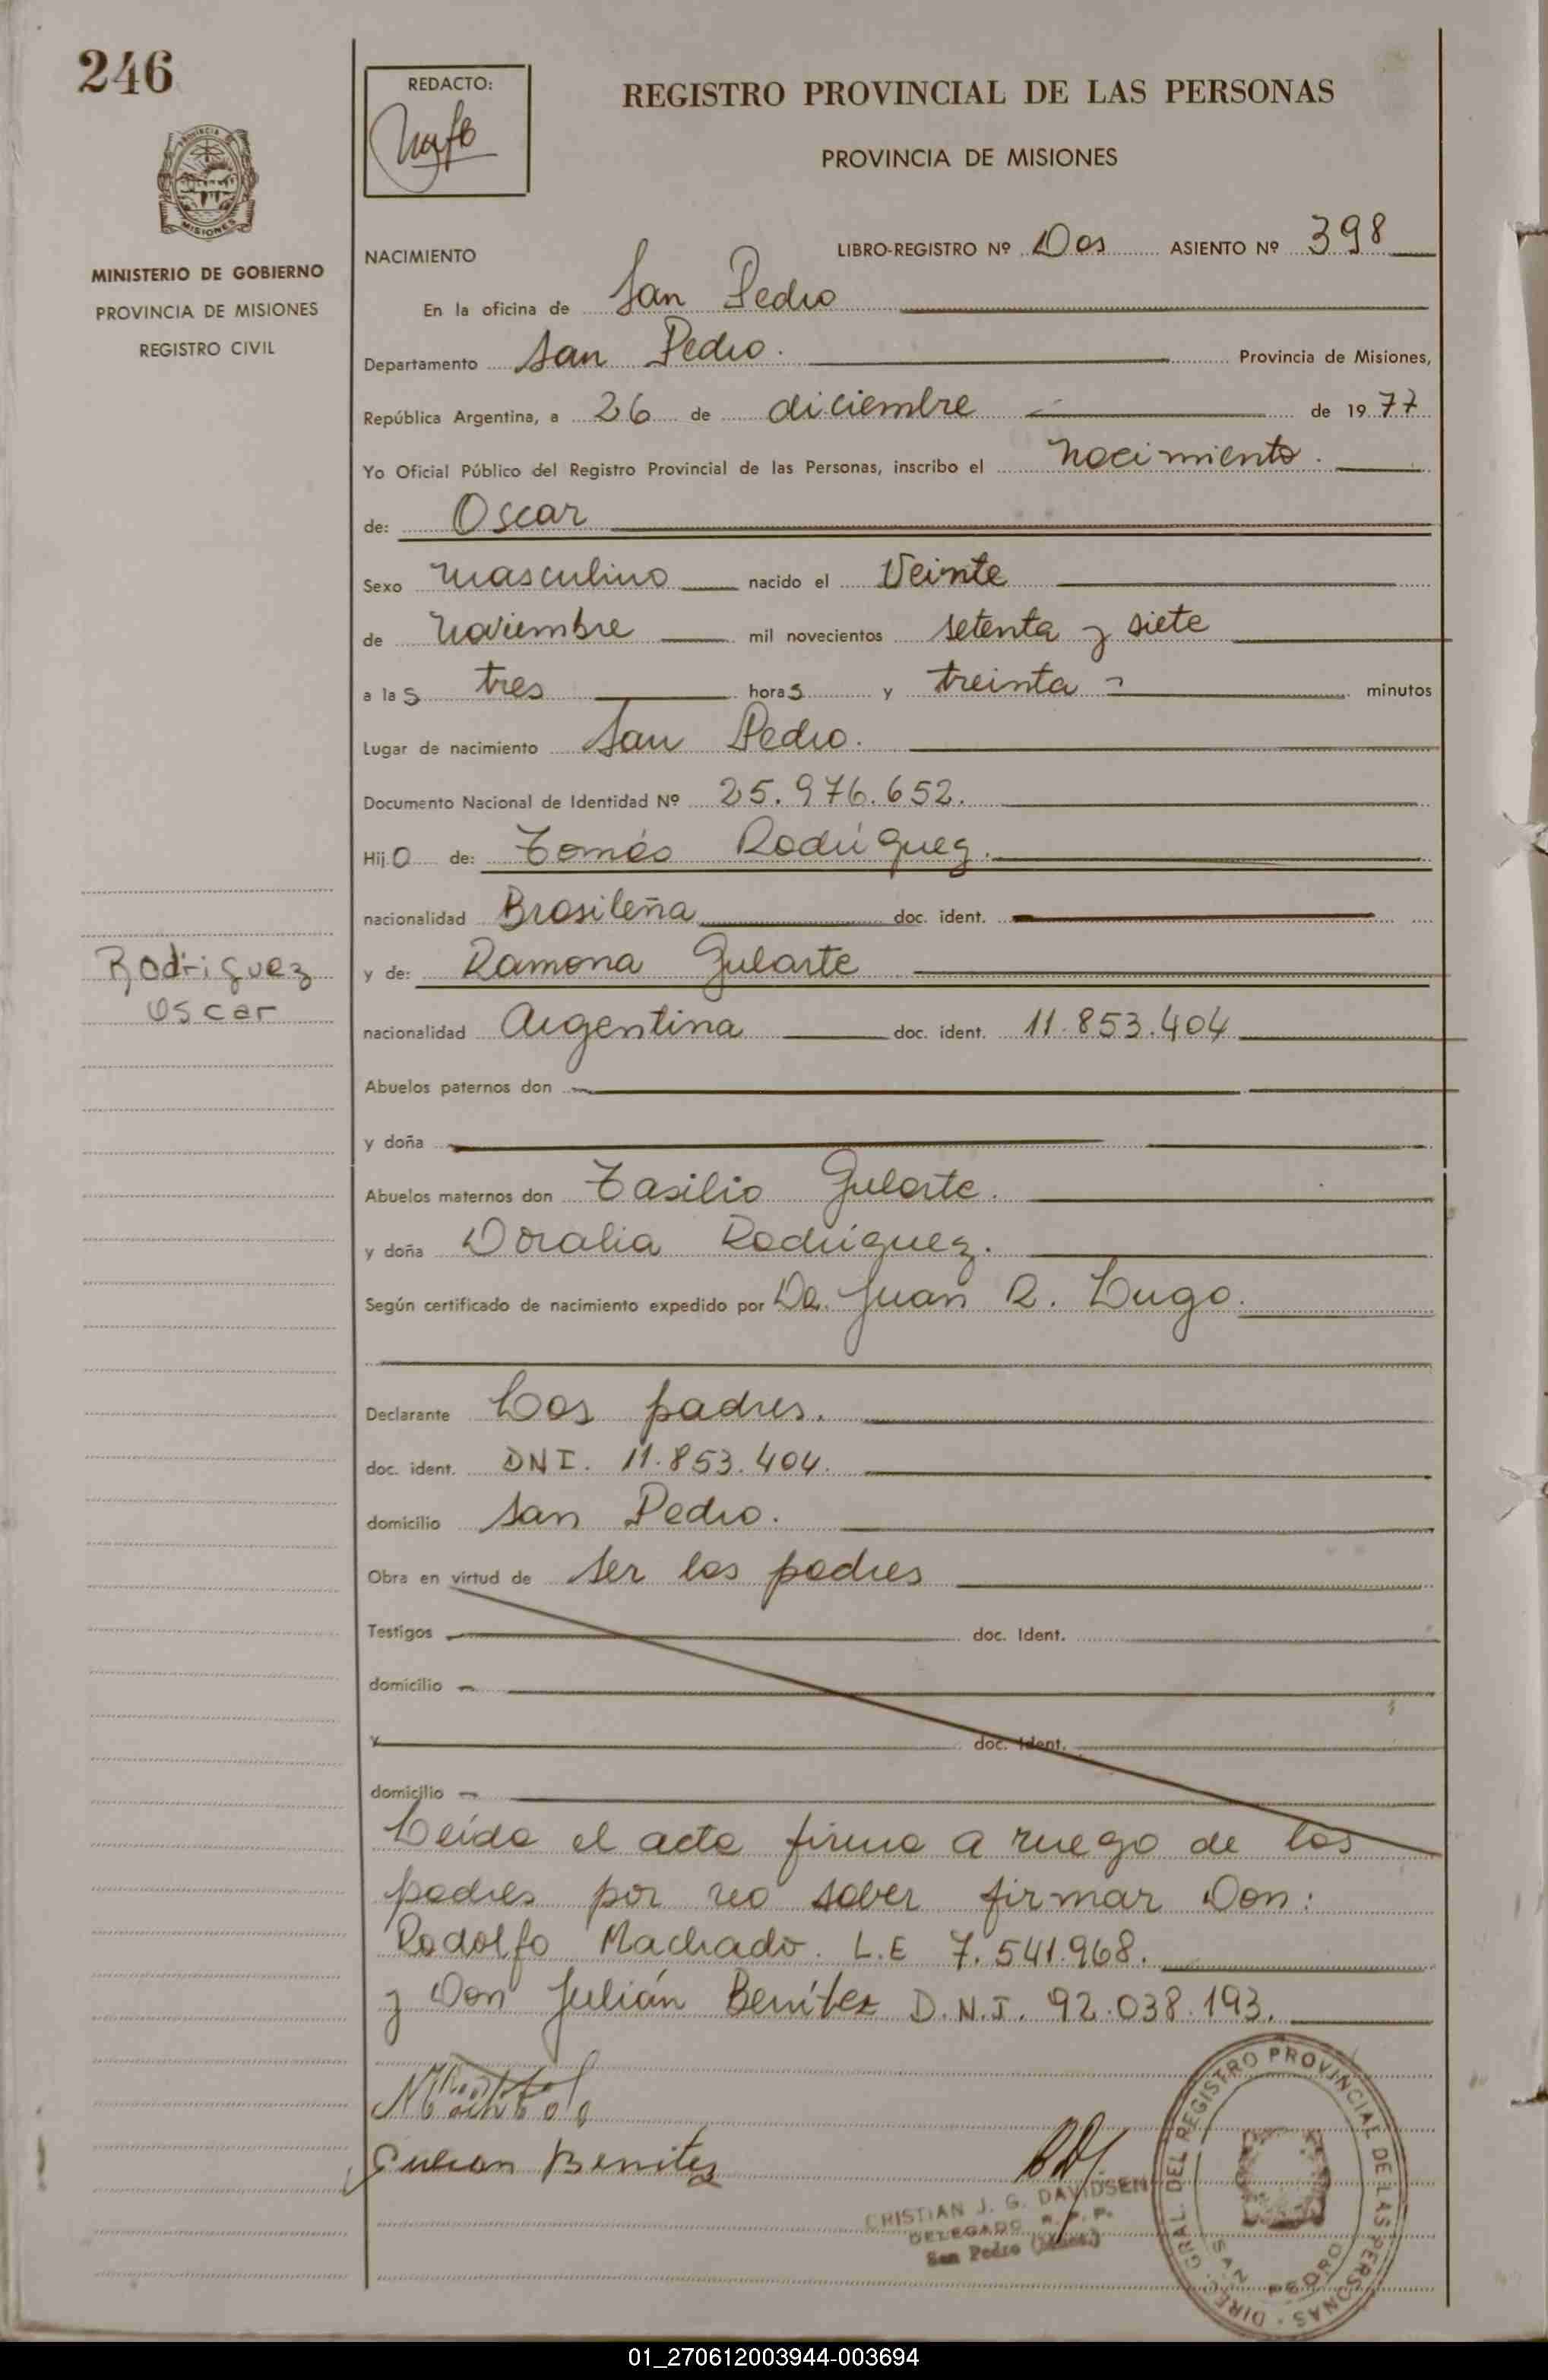 246
REDACTO:
REGISTRO PROVINCIAL DE LAS PERSONAS
PROVINCIA DE MISIONES
PROVINCIA
MISIONES
MINISTERIO DE GOBIERNO
PROVINCIA DE MISIONES
REGISTRO CIVIL
NACIMIENTO LIBRO-REGISTRO Nº Dos ASIENTO Nº 398
En la oficina de San Pedro
Departamento San Pedro. Provincia de Misiones,
República Argentina, a 26 de diciembre de 1977
Yo Oficial Público del Registro Provincial de las Personas, inscribo el nacimiento.
de: Oscar
Sexo masculino nacido el Veinte
de noviembre mil novecientos setenta y siete
a las tres horas y treinta minutos
Lugar de nacimiento San Pedro.
Documento Nacional de Identidad Nº 25.976.652.
Hijo de: Tomás Rodríguez.
nacionalidad Brasileña doc. ident.
Rodriguez
Oscar
y de: Ramona Gularte
nacionalidad Argentina doc. ident. 11.853.404
Abuelos paternos don
y doña
Abuelos maternos don Tasilio Gularte.
y doña Doralia Rodríguez.
Según certificado de nacimiento expedido por Da. Juan R. Lugo.
Declarante Los padres.
doc. ident. DNI. 11.853.404.
domicilio San Pedro.
Obra en virtud de ser los padres
Testigos doc. Ident.
domicilio
y doc. Ident.
domicilio
Leída el acta firma a ruego de los
padres por no saber firmar Don:
Rodolfo Machado. L.E 7.541.968.
y Don Julián Benítez D.N.I. 92.038.193.
Julian Benitez
CRISTIAN J. G. DAVIDSEN
DELEGADO R. P. P.
San Pedro (Mnes.)
DIREC. GRAL. DEL REGISTRO PROVINCIAL DE LAS PERSONAS
SAN PEDRO
01_270612003944-003694